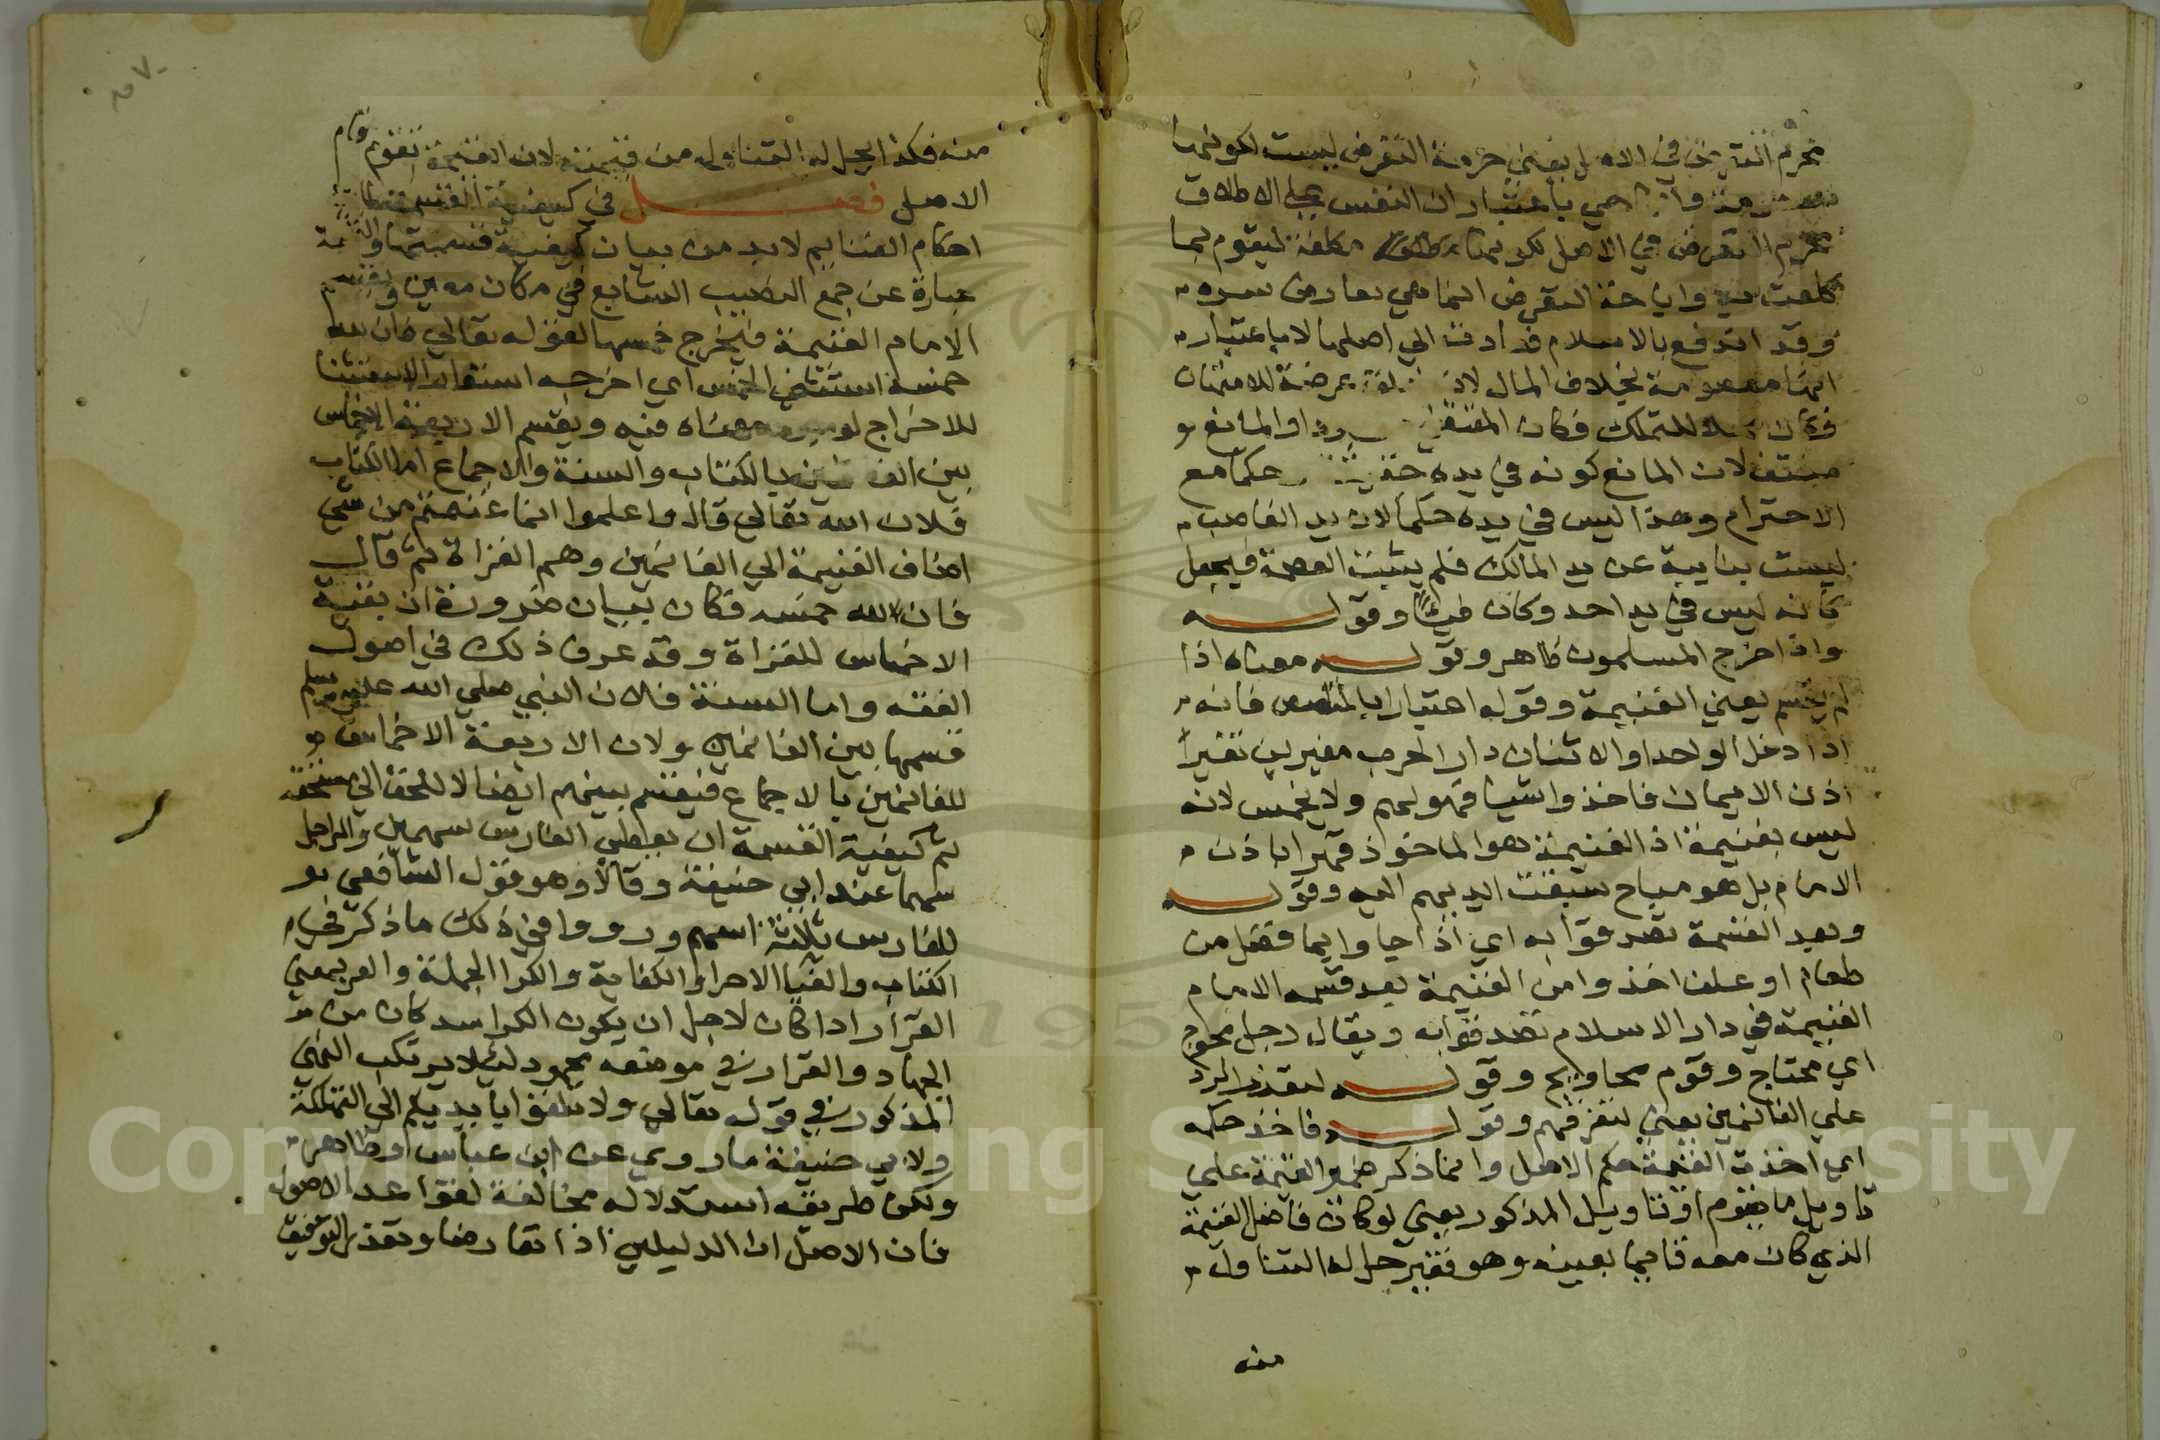 محرم التعرض في الاصل يعني حرمة التعرض ليست لكونها
معصومة وانما هي باعتبار ان النفس على الاطلاق
محرم التعرض في الاصل لكونها مكلفة ليقوم بما
كلفت به واباحة التعرض انما هي بعارض شره
وقد اندفع بالاسلام فعادت الى اصلها لا باعتبار
انها معصومة بخلاف المال لانه خلق عرضة للامتهان
فكان محلا للتملك فكان المقتضى موجودا والمانع
منتف لان المانع كونه في يده حقيقة حكما مع
الاحترام وهذا ليس في يده حكما لان يد الغاصب
ليست بنايبة عن يد المالك فلم يثبت العصمة فيجعل
كانه ليس في يد احد وكان فيئا وقوله
واذا خرج المسلمون ظاهر وقوله معناه اذا
لم يقسم يعني الغنيمة وقوله اعتبارا بالمتلصص فانه
اذا دخل الواحد او الاثنان دار الحرب مغيرين بغير
اذن الامام فاخذوا شيا فهو لهم ولا يخمس لانه
ليس بغنيمة اذ الغنيمة هو الماخوذ قهرا باذن
الامام بل هو مباح سبقت ايديهم اليه وقوله
وبعد القسمة تصدقوا به اي اذا جاوا بما فضل من
طعام او علف اخذوا من الغنيمة بعد قسمه الامام
الغنيمة في دار الاسلام تصدقوا به ويقال رجل محوج
اي محتاج وقوم محاويج وقوله لتعذر الرد
على الغانمين يعني لتفرقهم وقوله فاخذ حكمه
اي اخذت القيمة حكم الاصل وانما ذكر ضمير القيمة على
تاويل ما يقوم او بتاويل المذكور يعني لو كان فاضل الغنيمة
الذي كان معه قايما بعينه وهو فقير حل له التناول
منه
منه فكذا يحل له التناول من قيمته لان القيمة تقوم مقام
الاصل فصل في كيفية القسمة
احكام الغنايم لا بد من بيان كيفية قسمتها والقسمة
عبارة عن جمع النصيب الشايع في مكان معين ويقسم
الامام الغنيمة فيخرج خمسها لقوله تعالى فان لله
خمسه استثنى الخمس اي اخرجه استعار الاستثنا
للاخراج لوجود معناه فيه ويقسم الاربعة الاخماس
بين الغانمين بالكتاب والسنة والاجماع اما الكتاب
فلان الله تعالى قال واعلموا انما غنمتم من شي
اضاف الغنيمة الى الغانمين وهم الغزاة ثم قال
فان لله خمسه فكان بيان ضرورة ان بقية
الاخماس للغزاة وقد عرف ذلك في اصول
الفقه واما السنة فلان النبي صلى الله عليه وسلم
قسمها بين الغانمين ولان الاربعة الاخماس
للغانمين بالاجماع فيقسم بينهم ايصالا للحق الى مستحقه
ثم كيفية القسمة ان يعطي الفارس سهمين والراجل
سهما عند ابي حنيفة وقالا وهو قول الشافعي
للفارس ثلثة اسهم ورووا في ذلك ما ذكر في
الكتاب والغنا الاجزا والكفاية والكر الحملة والفر بمعنى
الفرار اذا كان لاجل ان يكون الكر اشد كان من
الجهاد والفرار في موضعه محمود لئلا يرتكب النهي
المذكور في قوله تعالى ولا تلقوا بايديكم الى التهلكة
ولابي حنيفة ما روي عن ابن عباس وظاهر
ولكن طريقة استدلاله مخالفة لقواعد الاصول
فان الاصل ان الدليلين اذا تعارضا وتعذر التوفيق